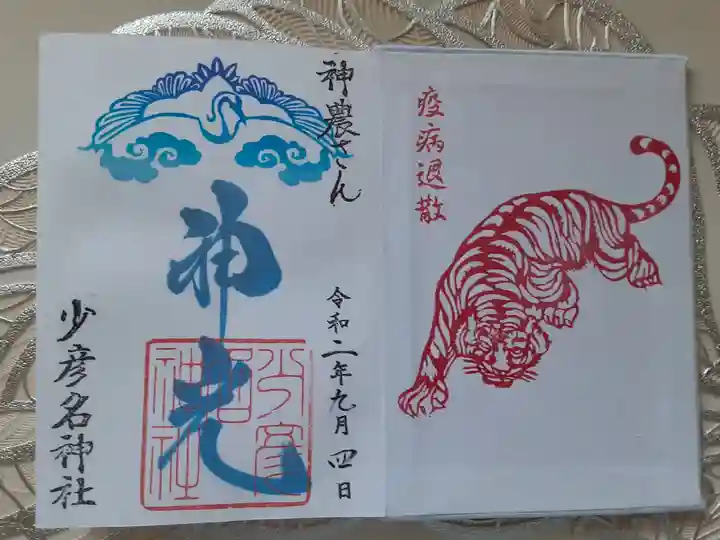 疫病退散
神農さん
令和二年九月四日
神光
少彦名神社
少彦名神社